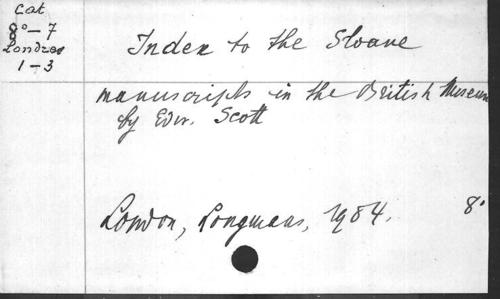 Cat
8° - 7
Londres
1 - 3
Index to the Sloane
manuscripts in the British Museum
by Edw. Scott
London, Longmans, 1904. 8°